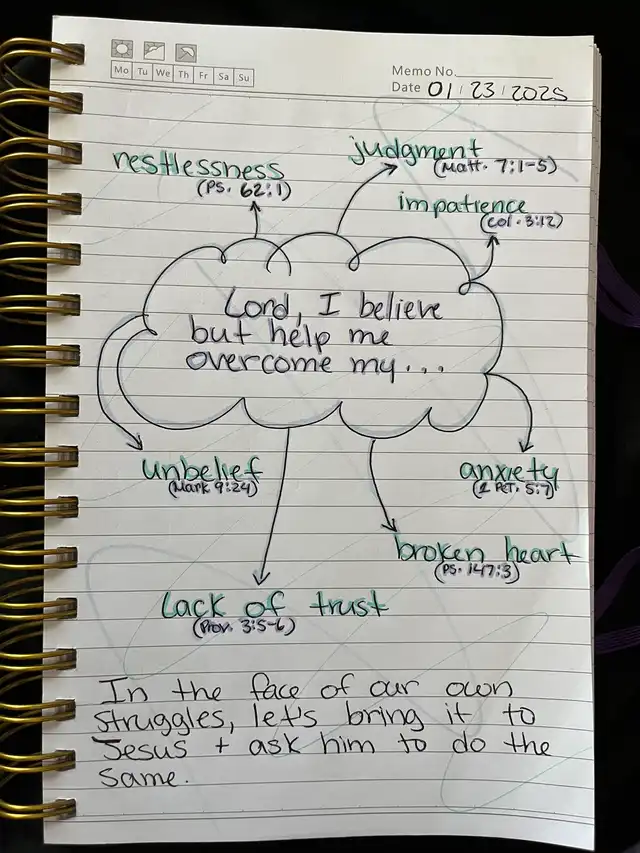 Mo Tu We Th Fr Sa Su
Memo No.
Date 01/23/2025
restlessness
(PS. 62:1)
judgment
(Matt. 7:1-5)
impatience
(Col. 3:12)
Lord, I believe
but help me
overcome my...
unbelief
(Mark 9:24)
anxiety
(1 PET. 5:7)
broken heart
(PS. 147:3)
Lack of trust
(Prov. 3:5-6)
In the face of our own
struggles, let's bring it to
Jesus + ask him to do the
same.